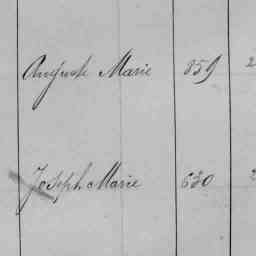 Auguste Marie 859 2
Joseph Marie 630 2